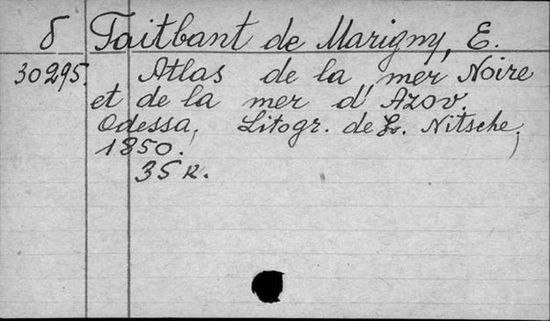 δ Taitbant de Marigny, E.
30295. Atlas de la mer Noire
et de la mer d'Azov.
Odessa, Litogr. de L. Nitsche,
1850.
35 K.